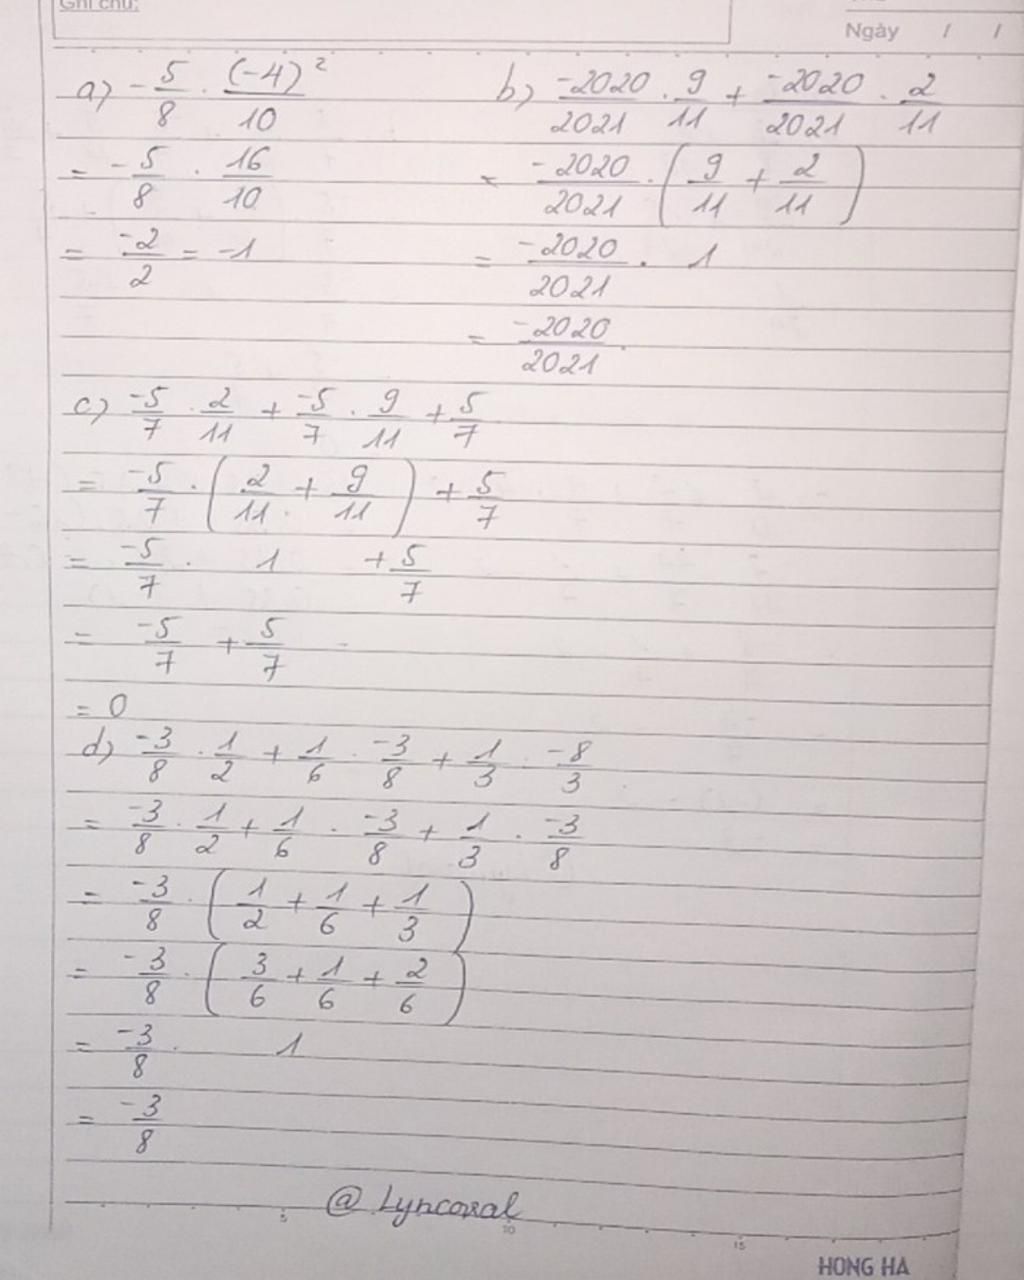 Ghi chú:
Ngày / /
a) -5/8 . (-4)²/10
= -5/8 . 16/10
= -2/2 = -1
b) -2020/2021 . 9/11 + -2020/2021 . 2/11
= -2020/2021 . (9/11 + 2/11)
= -2020/2021 . 1
= -2020/2021.
c) -5/7 . 2/11 + -5/7 . 9/11 + 5/7
= -5/7 . (2/11 + 9/11) + 5/7
= -5/7 . 1 + 5/7
= -5/7 + 5/7
= 0
d) -3/8 . 1/2 + 1/6 . -3/8 + 1/3 . -8/3
= -3/8 . 1/2 + 1/6 . -3/8 + 1/3 . -3/8
= -3/8 . (1/2 + 1/6 + 1/3)
= -3/8 . (3/6 + 1/6 + 2/6)
= -3/8 . 1
= -3/8
@ Lyncoral
5 10 15
HONG HA